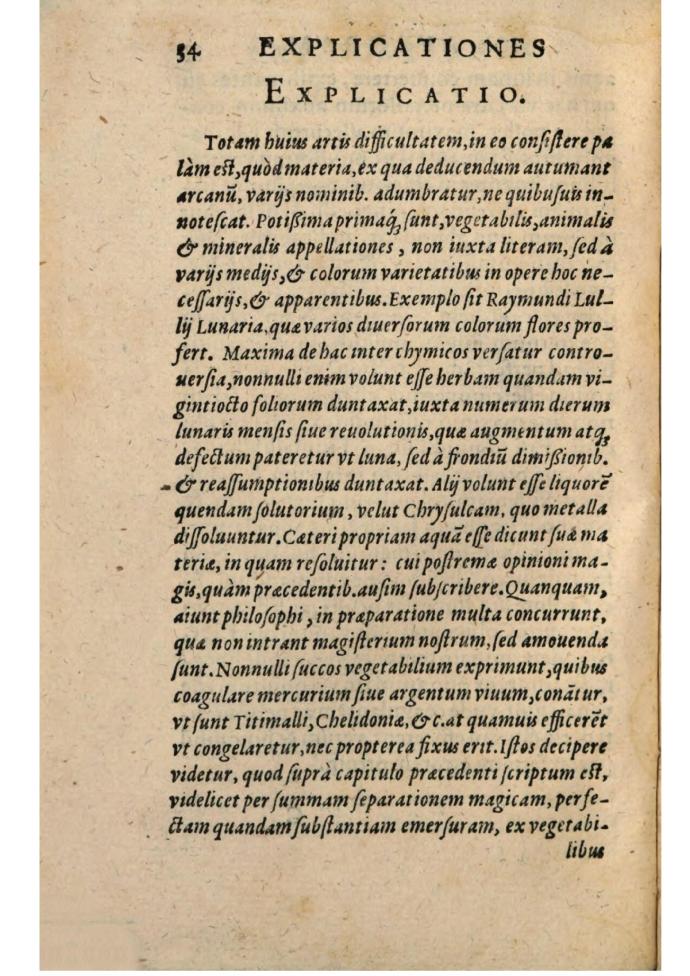 54 EXPLICATIONES
EXPLICATIO.
Totam huius artis difficultatem, in eo consistere pa
làm est, quòd materia, ex qua deducendum autumant
arcanū, varijs nominib. adumbratur, ne quibusuis in-
notescat. Potißima primaq́; sunt, vegetabilis, animalis
& mineralis appellationes, non iuxta literam, sed à
varijs medijs, & colorum varietatibus in opere hoc ne-
cessarijs, & apparentibus. Exemplo sit Raymundi Lul-
lij Lunaria, quæ varios diuersorum colorum flores pro-
fert. Maxima de hac inter chymicos versatur contro-
uersia, nonnulli enim volunt esse herbam quandam vi-
gintiocto foliorum duntaxat, iuxta numerum dierum
lunaris mensis siue reuolutionis, quæ augmentum atq;
defectum pateretur vt luna, sed à frondiū dimißionib.
& reassumptionibus duntaxat. Alij volunt esse liquorē
quendam solutorium, velut Chrysulcam, quo metalla
dissoluuntur. Cæteri propriam aquā esse dicunt suæ ma
teriæ, in quam resoluitur: cui postremæ opinioni ma-
gis, quàm præcedentib. ausim subscribere. Quanquam,
aiunt philosophi, in præparatione multa concurrunt,
quæ non intrant magisterium nostrum, sed amouenda
sunt. Nonnulli succos vegetabilium exprimunt, quibus
coagulare mercurium siue argentum viuum, conātur,
vt sunt Titimalli, Chelidoniæ, &c. at quamuis efficerēt
vt congelaretur, nec propterea fixus erit. Istos decipere
videtur, quod suprà capitulo præcedenti scriptum est,
videlicet per summam separationem magicam, perfe-
ctam quandam substantiam emersuram, ex vegetabi-
libus